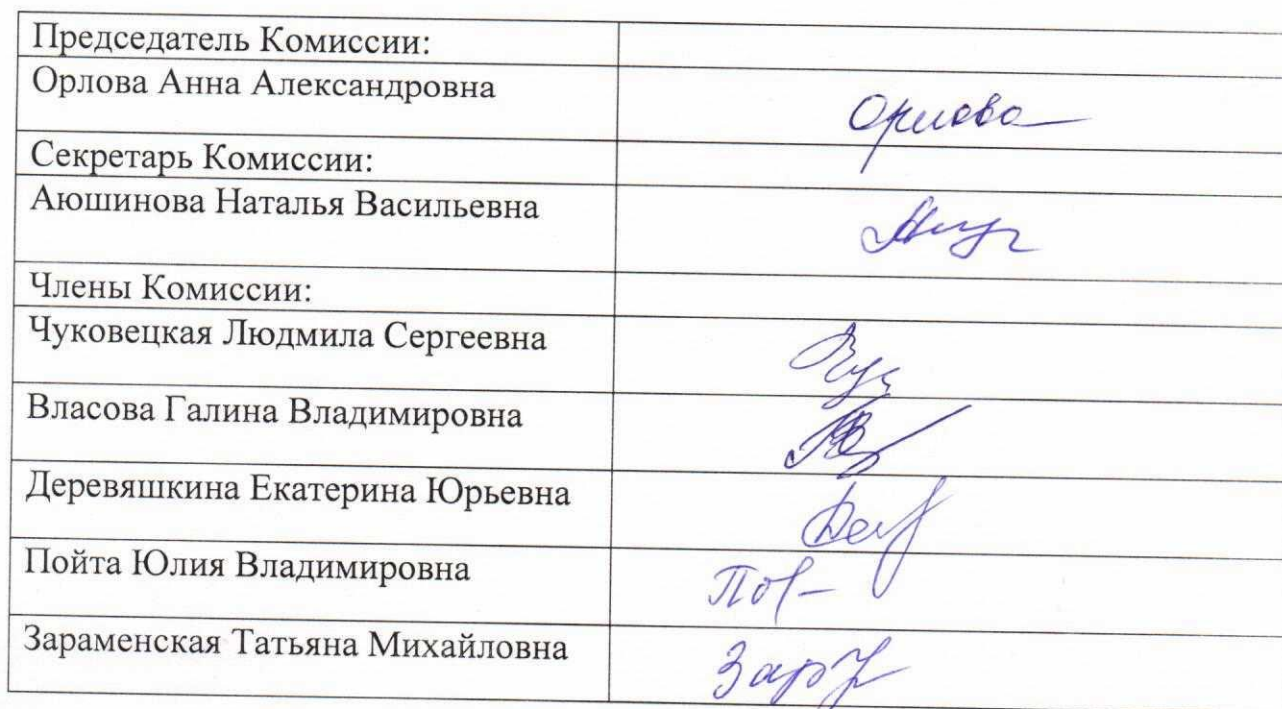 Председатель Комиссии:
Орлова Анна Александровна
Орлова
Секретарь Комиссии:
Аюшинова Наталья Васильевна
Члены Комиссии:
Чуковецкая Людмила Сергеевна
Власова Галина Владимировна
Деревяшкина Екатерина Юрьевна
Пойта Юлия Владимировна
Зараменская Татьяна Михайловна